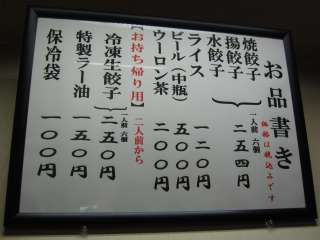 お品書き
価格は税込みです
焼餃子
揚餃子
水餃子
一人前 六個
二五四円
ライス
一二〇円
ビール(中瓶)
五〇〇円
ウーロン茶
二〇〇円
【お持ち帰り用】
二人前から
冷凍生餃子
一人前 六個
二五〇円
特製ラー油
一五〇円
保冷袋
一〇〇円